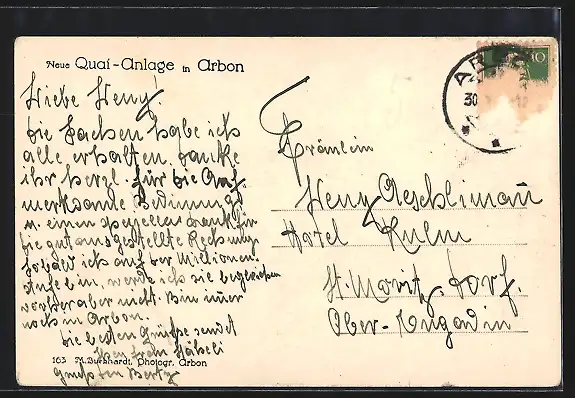 Neue Quai-Anlage in Arbon
Liebe Heny!
die Sachen habe ich
alle erhalten. danke
ihr herzl. für die Auf
merksame Bedinung
u. einen spezellen dank für
die gut ausgestellte Rechnung
sobald ich auf der Millionen
bin, werde ich sie begleichen
vorher aber nicht. Bin imer
noch in Arbon.
die besten Grüsse sendet
163 M. Burkhardt, Photogr. Arbon
AR
30
10
Fräulein
Heny Aeschlimañ
Hotel Kulm
St. Moritz, Dorf.
Ober-Engadin